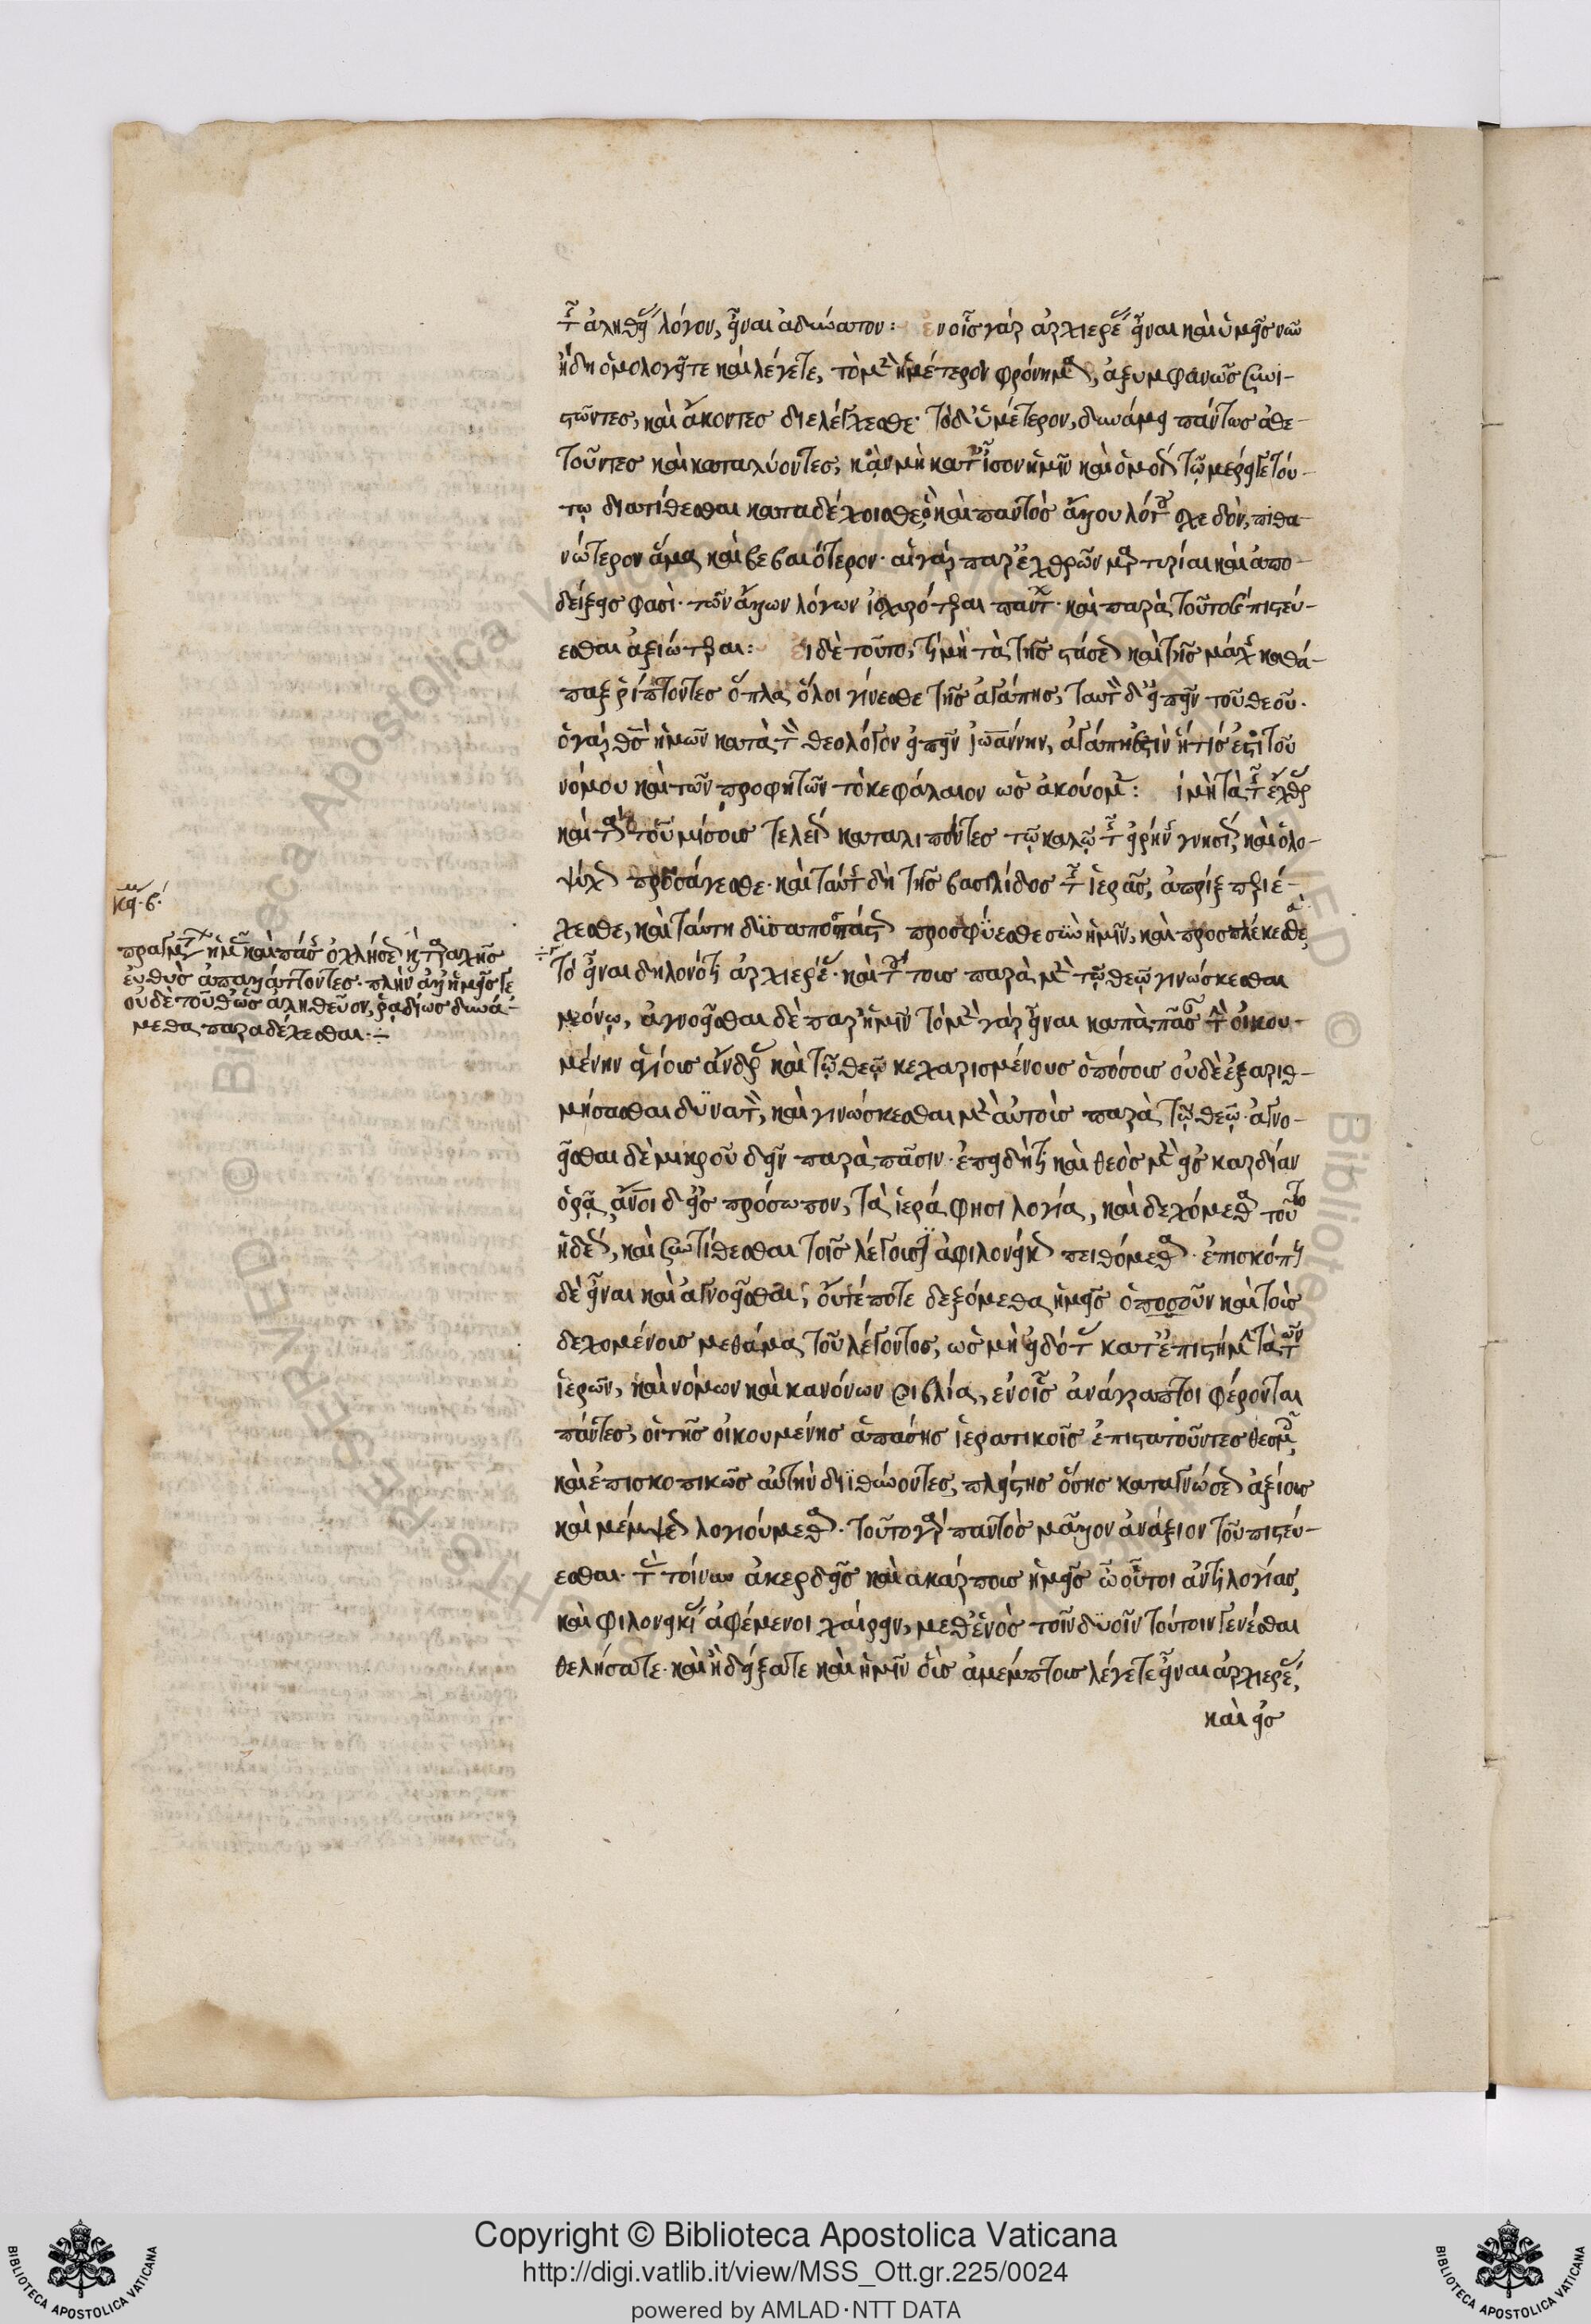 τῆς ἀληθείας λόγον, εἶναι ἀδύνατον: ἐν οἷς γὰρ ἀρχιερεῖς εἶναι καὶ ὑμᾶς νῦν
ἤδη ὁμολογεῖτε καὶ λέγετε, τὸ μὲν ἡμέτερον φρόνημα, ἀξυμφώνως συνι-
στῶντες, καὶ ἄκοντες διελέγχεσθε· τὸ δ' ὑμέτερον, δυνάμει πάντως ἀθε-
τοῦντες καὶ καταλύοντες, κἂν μὴ κατ' ἴσον ἡμῖν καὶ ὁμοίως τῷ μέρει γε τού-
τῳ διατίθεσθαι καταδέχοισθε· ὃ καὶ παντὸς ἄλλου λόγου σχεδὸν, πιθα-
νώτερον ἅμα καὶ βεβαιότερον· αἱ γὰρ παρ' ἐχθρῶν μαρτυρίαι καὶ ἀπο-
δείξεις φασὶ· τῶν ἄλλων λόγων ἰσχυρότεραι πάντων· καὶ παρὰ τοῦτο πιστεύ-
εσθαι ἀξιώτεραι: εἰ δὲ τοῦτο, τί μὴ τὰ τῆς στάσεως καὶ τῆς μάχης καθά-
παξ ῥίπτοντες ὅπλα, ὅλοι γίνεσθε τῆς ἀγάπης, ταυτὸν δ' εἰπεῖν τοῦ θεοῦ·
ὁ γὰρ θς ἡμῶν κατὰ τὸν θεολόγον εἰπεῖν ἰωάννην, ἀγάπη ἐστὶν ἥτίς ἐστι τοῦ
νόμου καὶ τῶν προφητῶν τὸ κεφάλαιον ὡς ἀκούομεν: ί μὴ τὰ τῆς ἔχθρας
καὶ τὰ τοῦ μίσους τελείως καταλιπόντες τῷ καλῷ τῆς εἰρήνης γνησίως, καὶ ὁλο-
ψύχως προσάγεσθε· καὶ ταύτης δὴ τῆς βασιλίδος τῆς ἱερᾶς, ἀπρὶξ περιέ-
χεσθε, καὶ ταύτῃ δυσαποσπάστως προσφύεσθε σὺν ἡμῖν, καὶ προσπλέκεσθε
τὸ εἶναι δηλονότι ἀρχιερεῖς· καὶ τούτοις παρὰ μὲν τῷ θεῷ γινώσκεσθαι
μόνῳ, ἀγνοεῖσθαι δὲ παρ' ἡμῖν τὸ μὲν γὰρ εἶναι κατὰ πᾶσαν τὴν οἰκου-
μένην ἁγίους ἄνδρας καὶ τῷ θεῷ κεχαρισμένους ὁπόσους οὐδὲ ἐξαριθ-
μήσασθαι δυνατὸν, καὶ γινώσκεσθαι μὲν αὐτοὺς παρὰ τῷ θεῷ· ἀγνο-
εῖσθαι δὲ μικροῦ δεῖν παρὰ πᾶσιν· ἐπειδήτι καὶ θεὸς μὲν εἰς καρδίαν
ὁρᾷ, ἄνοι δ' εἰς πρόσωπον, τὰ ἱερά φησι λογία, καὶ δεχόμεθα τοῦτο
ἡδέως, καὶ συντίθεσθαι τοῖς λέγουσιν ἀφιλονείκως πειθόμεθα· ἐπισκόπους
δὲ εἶναι καὶ ἀγνοεῖσθαι, οὔτέ ποτε δεξόμεθα ἡμεῖς ὁπωσοῦν καὶ τοὺς
δεχομένους μεθάμα τοῦ λέγοντος, ὡς μὴ εἰδότας κατ' ἐπιστήμην τὰ τῶν
ἱερῶν, καὶ νόμων καὶ κανόνων βιβλία, ἐν οἷς ἀνάγραπτοι φέρονται
πάντες, οἱ τῆς οἰκουμένης ἁπάσης ἱερατικοῖς ἐπιστατοῦντες θεσμοῖς,
καὶ ἐπισκοπικῶς αὐτὴν διϊθύνοντες, πλείστης ὅσης καταγνώσεως ἀξίους
καὶ μέμψεως λογιούμεθα· τοῦτο γὰρ παντὸς μᾶλλον ἀνάξιον τοῦ πιστεύ-
εσθαι· τὰς τοίνυν ἀκερδεῖς καὶ ἀκάρπους ἡμεῖς ὦ οὗτοι ἀντιλογίας,
καὶ φιλονεικίας ἀφέμενοι χαίρειν, μεθ' ἑνὸς τοῖν δυοῖν τούτοιν γενέσθαι
θελήσατε· καὶ ἢ δείξατε καὶ ἡμῖν οὓς ἀμέμπτους λέγετε εἶναι ἀρχιερεῖς,
καὶ εἰς
κείμενον β'
εὐθὺς ἀπαλλάττοντες· πλὴν ἀλλ' ἡμεῖς γε
οὐδὲ τοῦθ' ὡς ἀληθεῦον, ῥαδίως δυνά-
μεθα παραδέχεσθαι
Copyright © Biblioteca Apostolica Vaticana
http://digi.vatlib.it/view/MSS_Ott.gr.225/0024
powered by AMLAD·NTT DATA
BIBLIOTECA APOSTOLICA VATICANA
BIBLIOTECA APOSTOLICA VATICANA